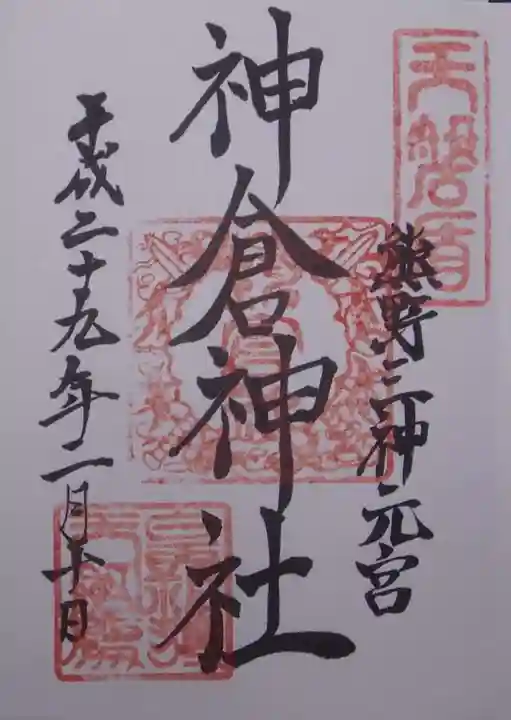 天磐盾
熊野三神元宮
神倉神社
平成二十九年二月十一日